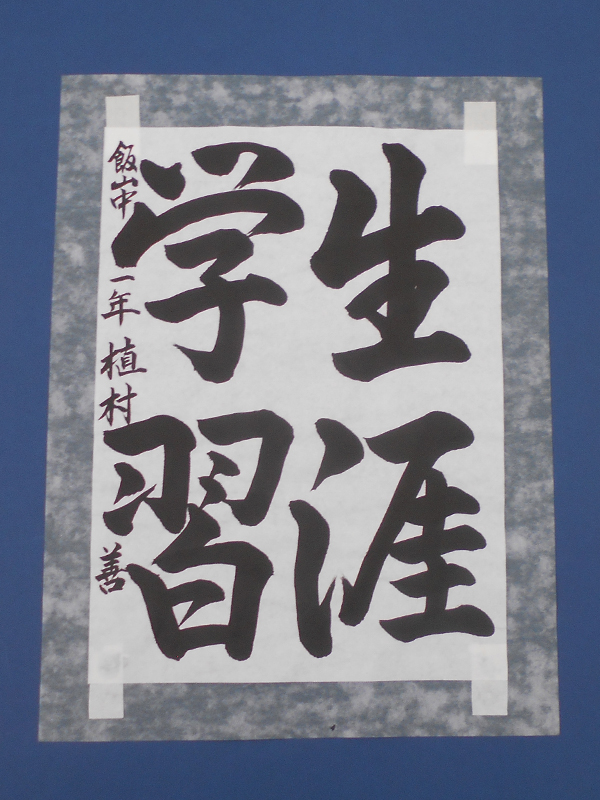 生涯
学習
飯山中 二年 植村 善